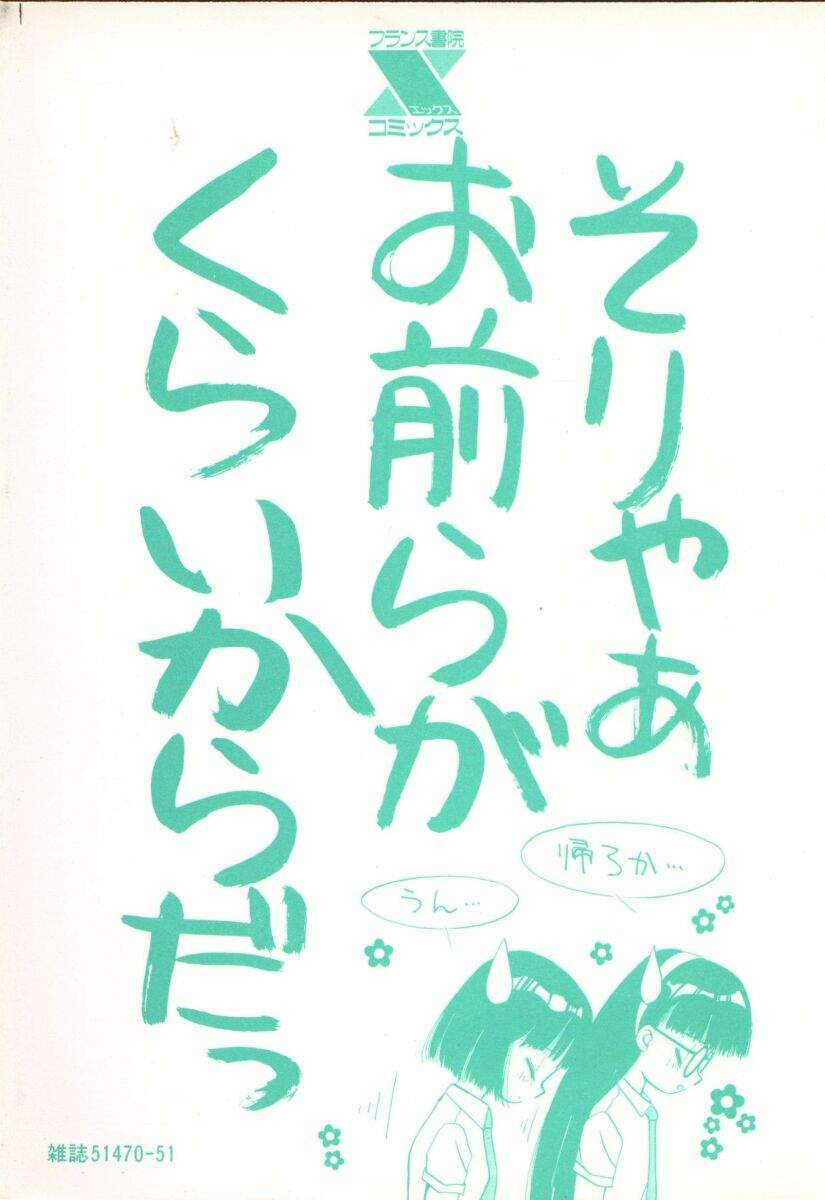 フランス書院
X
エックス
コミックス
そりゃあ
お前らが
くらいからだっ
帰ろか…
うん…
雑誌51470-51